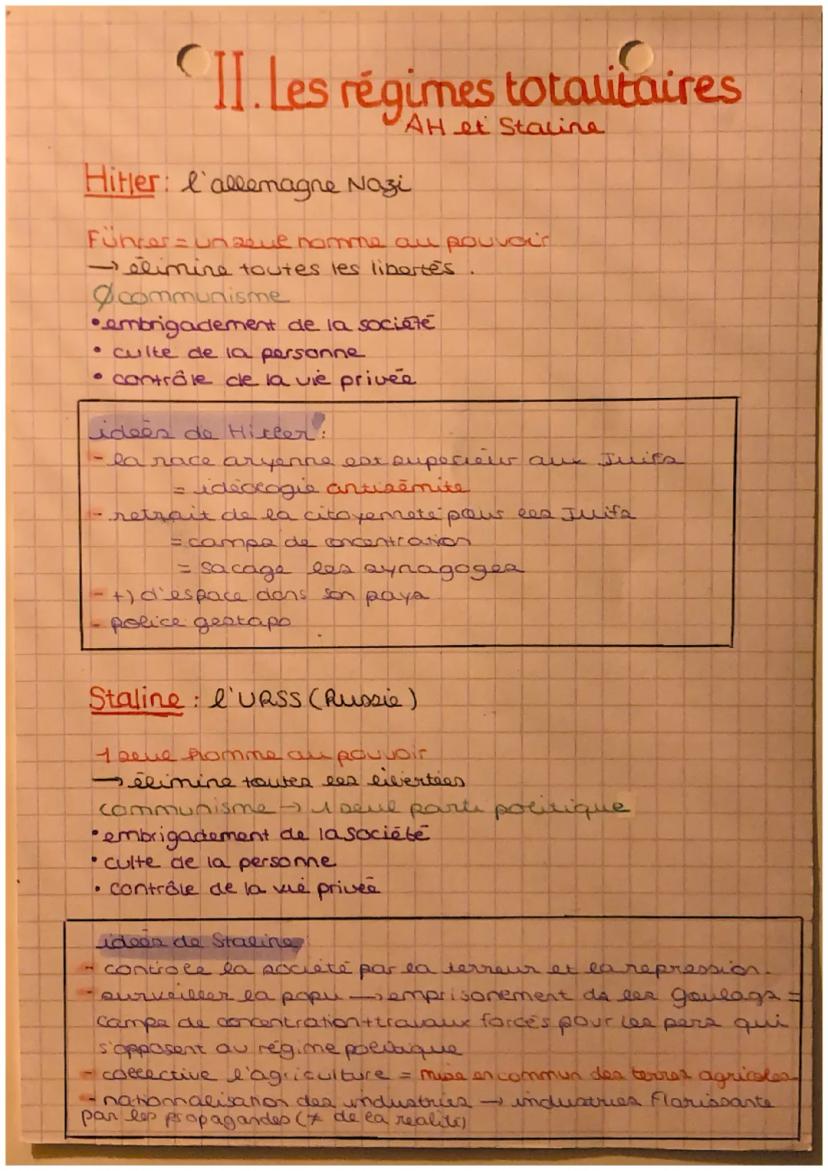 II. Les régimes totalitaires
AH et Staline
Hitler : l'allemagne Nazi
Führer = un seul homme au pouvoir
→ élimine toutes les libertés .
Ø communisme
• embrigadement de la société
• culte de la personne
• contrôle de la vie privée
ideés de Hitler :
- la race aryenne est supérieur aux Juifs
= idéologie antisémite
- retrait de la citoyenneté pour les Juifs
= camps de concentration
= sacage les synagoges
- +) d'espace dans son pays
- police gestapo
Staline : l'URSS (Russie)
1 seul homme au pouvoir
→ élimine toutes les libertées
communisme → 1 seul parti politique
• embrigadement de la société
• culte de la personne
• contrôle de la vie privée
ideés de Staline
- controle la société par la terreur et la repression.
- surveiller la popu → emprisonement ds les Goulags =
camps de concentration + travaux forcés pour les pers qui
s'opposent au régime politique
- collective l'agriculture = mise en commun des terres agricoles
- nationnalisation des industries → industries florissante
par les propagandes (≠ de la realité)